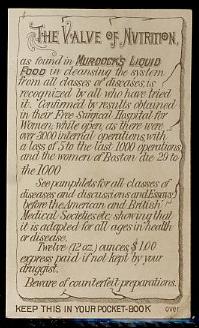 THE VALVE OF NVTRITION,
as found in MURDOCK'S LIQUID
FOOD in cleansing the system
from all classes of diseases, is
recognized by all who have tried
it. Confirmed by results obtained
in their Free Surgical Hospital for
Women, while open, as there were
over 3000 internal operations, with
a loss of 5 to the last 1000 operations
and the women of Boston die 29 to
the 1000
See pamphlets for all classes of
diseases and discussions and Essays
before the American and British
Medical Societies etc. showing that
it is adapted for all ages in health
or disease.
Twelve (12 oz.) ounces, $1.00
express paid if not kept by your
druggist.
Beware of counterfeit preparations.
KEEP THIS IN YOUR POCKET-BOOK over